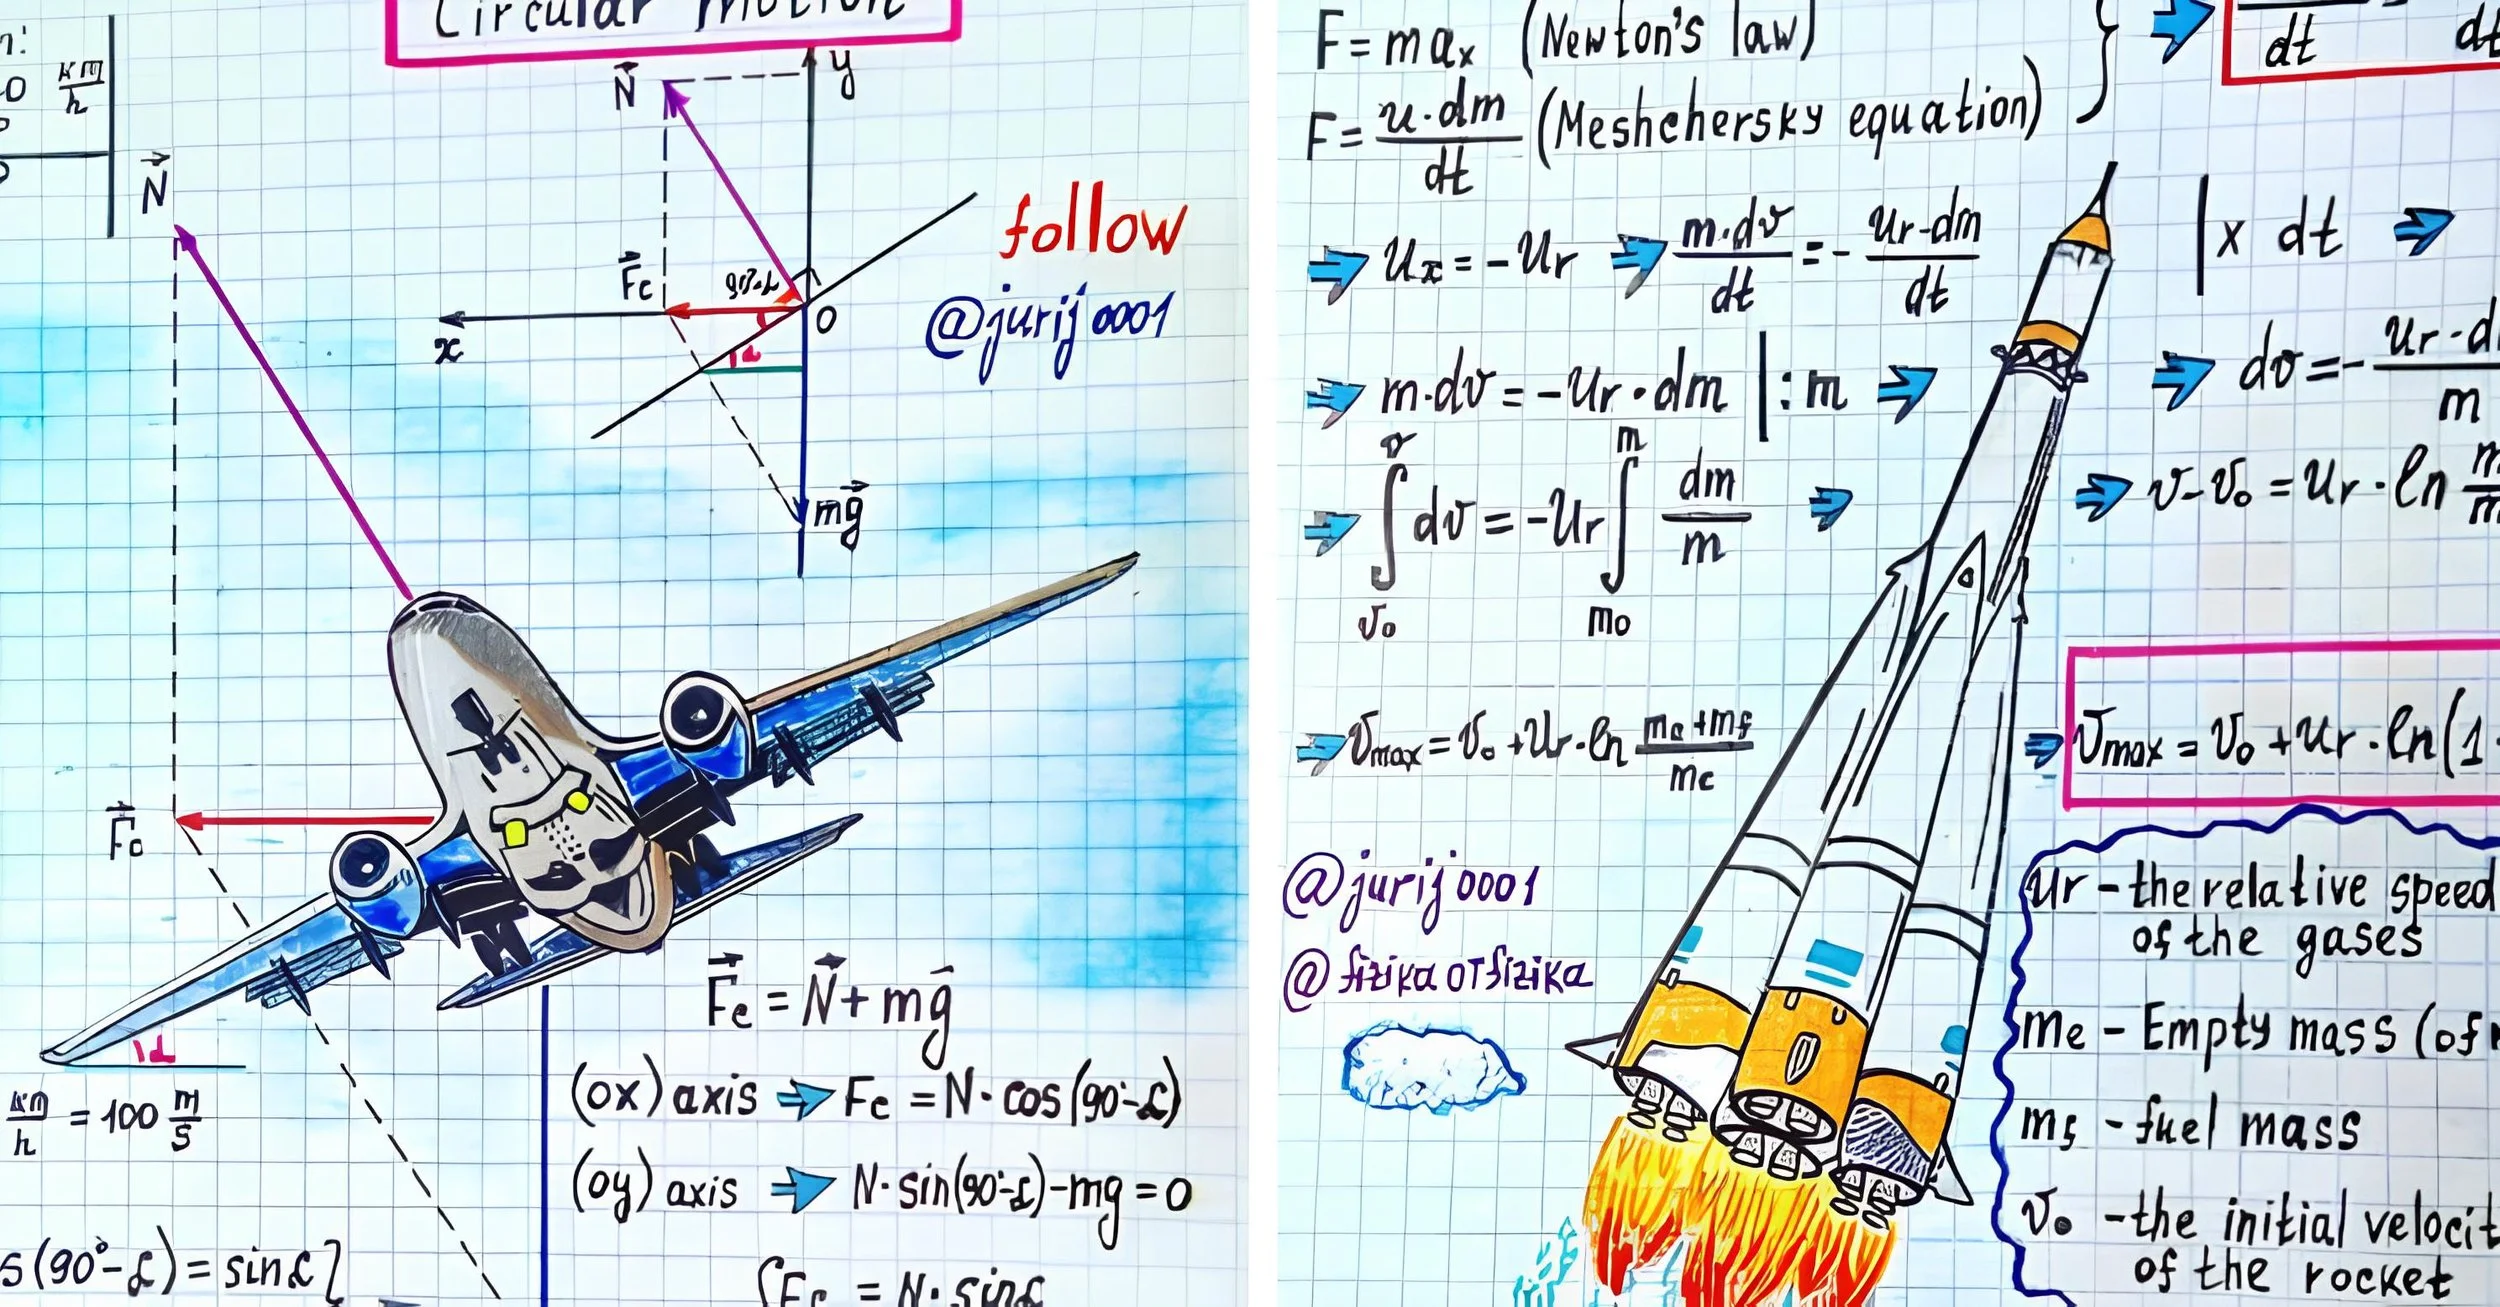 Circular motion
n:
0 км/h
N
N
y
Fc
90°-α
O
x
α
mg
follow
@jurij0001
Fc
α
км/h = 100 m/s
Fc = N + mg
(ox) axis ⇒ Fc = N · cos(90°-α)
(oy) axis ⇒ N · sin(90°-α) - mg = 0
s(90°-α) = sinα
Fc = N · sinα
F = max (Newton's law)
F = u · dm/dt (Meshchersky equation)
dt dt
⇒ ux = -ur ⇒ m · dv/dt = - ur · dm/dt | x dt ⇒
⇒ m · dv = -ur · dm | : m ⇒ dv = - ur · d/m
⇒ ∫ v v₀ dv = -ur ∫ m m₀ dm/m ⇒ v - v₀ = ur · ln m/m
⇒ vmax = v₀ + ur · ln me + mf/me ⇒ vmax = v₀ + ur · ln(1
@jurij0001
@fizikaotfizika
ur - the relative speed
of the gases
me - Empty mass (of
mf - fuel mass
v₀ - the initial velocit
of the rocket